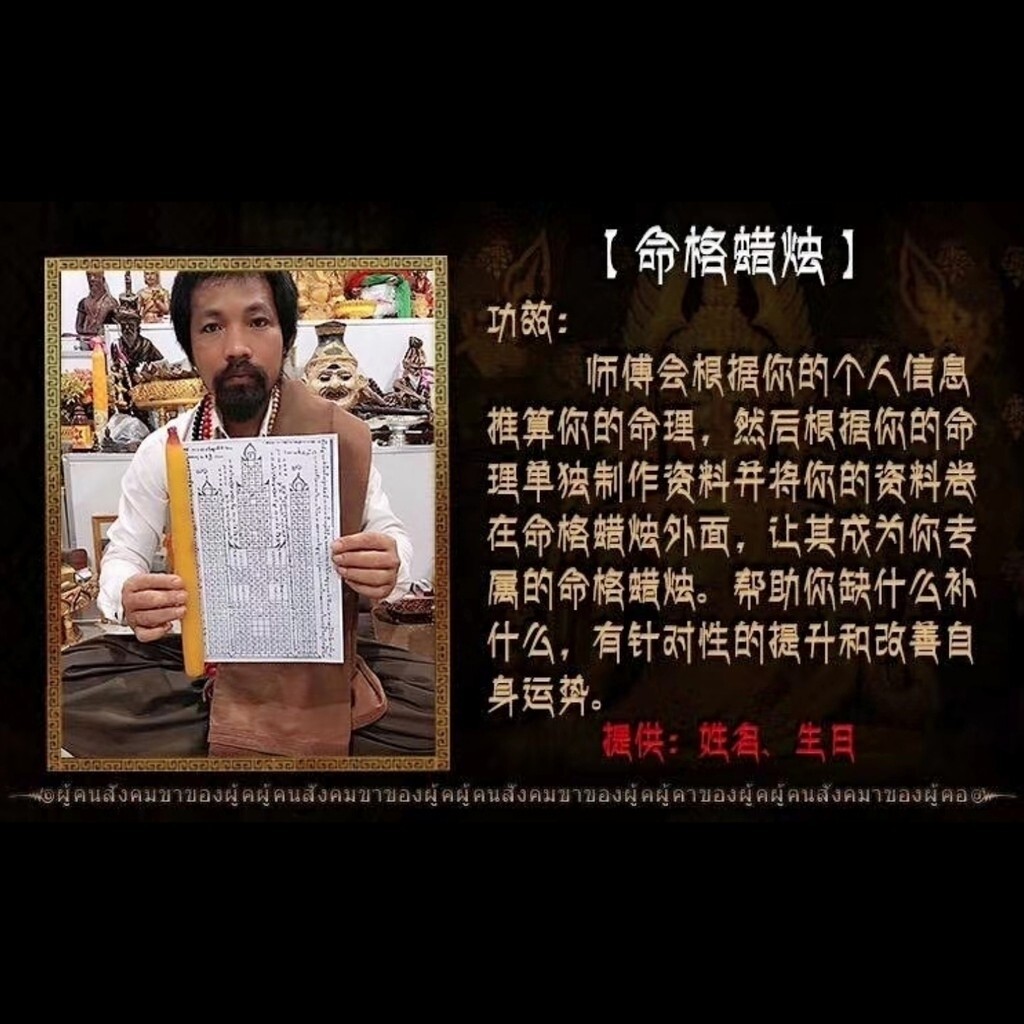 【命格蜡烛】
功效：
师傅会根据你的个人信息
推算你的命理，然后根据你的命
理单独制作资料并将你的资料卷
在命格蜡烛外面，让其成为你专
属的命格蜡烛。帮助你缺什么补
什么，有针对性的提升和改善自
身运势。
提供：姓名、生日
@ผู้คนสังคมขาของผู้คผู้คนสังคมขาของผู้คผู้คนสังคมขาของผู้คผู้คาของผู้คผู้คนสังคมาของผู้คอ@